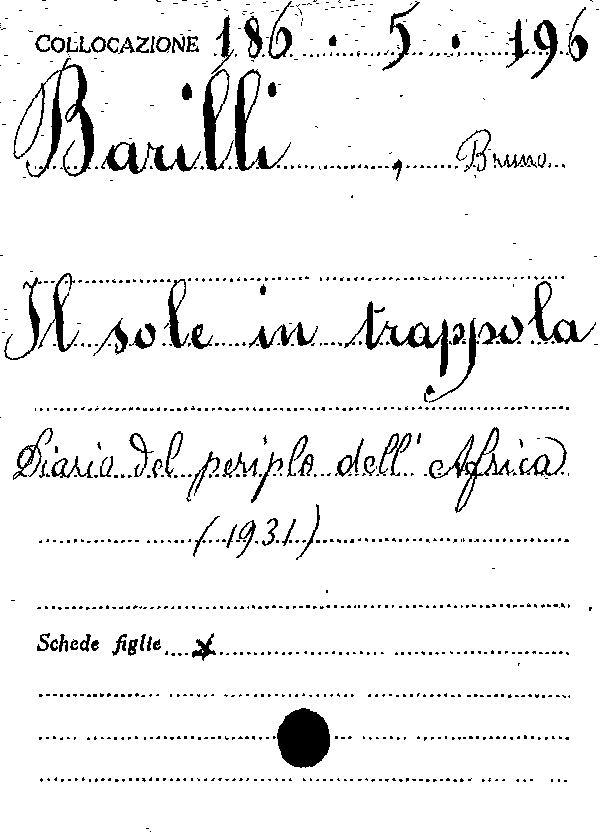 COLLOCAZIONE 186 . 5 . 196
Barilli , Bruno
Il sole in trappola
Diario del periplo dell' Africa
(1931)
Schede figlie x